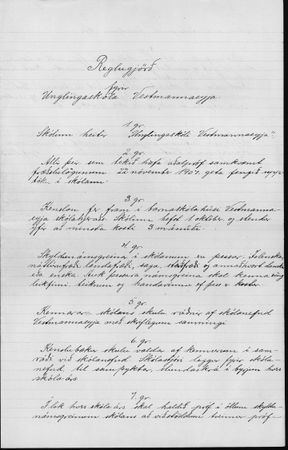 Reglugjörð
fyrir
Unglingaskóla Vestmannaeyja
1 gr
Skólinn heitir "Unglingaskóli Vestmannaeyja"
2 gr
Allir þeir sem tekið hafa aðalpróf samkvæmt
fræðslulögunum 22 nóvember 1907 geta fengið inn-
töku í skólann
3 gr
Kenslan fer fram í barnaskólahúsi Vestmanna
eyja skólahjeraðs Skólinn hefst 1 október og stendur
yfir að minsta kosti 3 mánuði
4 gr
Skyldunámsgreinar í skólanum eru þessar Íslenska
náttúrufræði landafræði, saga, og annaðhvort danska
eða enska Auk þessara námsgreina skal kenna
leikfimi teikning og handavinnu ef þess er kostur
5 gr
Kennarar skólans skulu ráðnir af skólanefnd
Vestmannaeyja með skriflegum samningi
6 gr
Kenslubækur skulu valdar af kennurum í sam-
ráði við skólanefnd Skólastjóri leggur fyrir skóla
nefnd til samþyktar stundaskrá í byrjun hvers
skólaárs
7 gr
Í lok hvers skólaárs skal haldið próf í öllum skyldu-
námsgreinum skólans að viðstöddum tveimur próf-